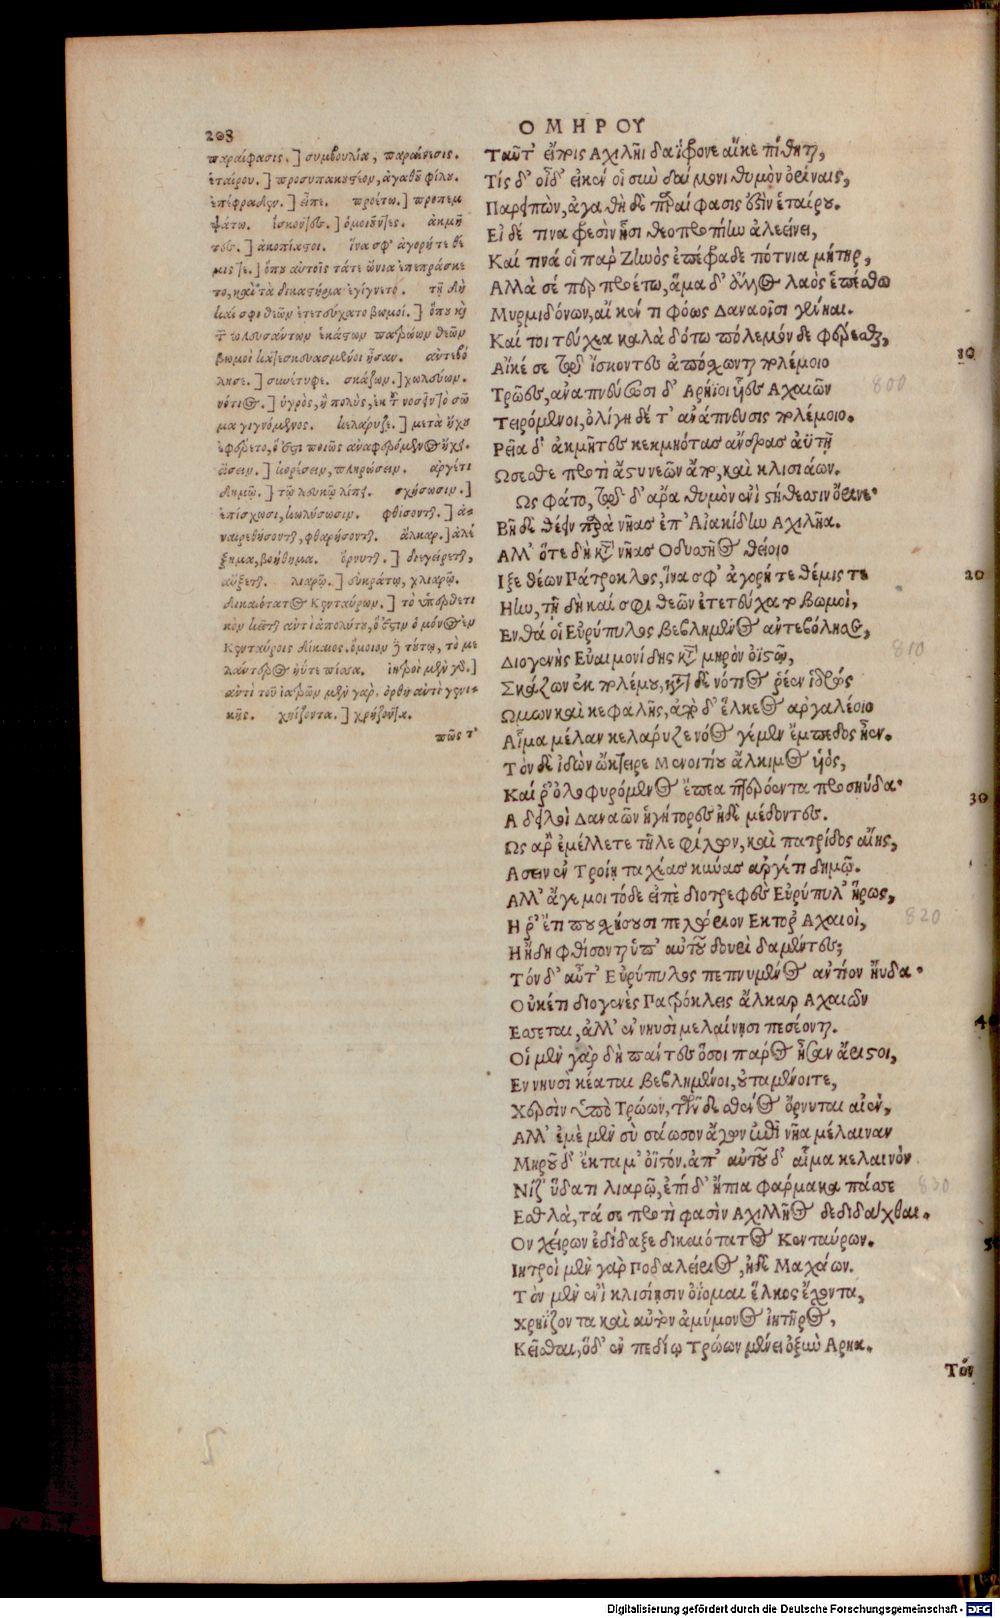 208
ΟΜΗΡΟΥ
παραίφασις.] συμβουλία, παραίνεσις.
ἑταίρου.] προσυπακουστέον, ἀγαθοῦ φίλου.
ἐπέφραδεν.] εἶπε. προέτω.] προπεμ
ψάτω. ἰσκοντες.] ὁμοιοῦντες. ἀκμῆ
τες.] ἀκοπίαστοι. ἵνα σφ' ἀγορή τε θέ
μις τε.] ὅπου αὐτοῖς τά τε ὤνια ἐπεπράσκε
το, καὶ τὰ δικαστήρια ἐγίγνετο. τῇ δὴ
καί σφι θεῶν ἐτετεύχατο βωμοί.] ὅπου καὶ
βωμοὶ κατεσκευασμένοι ἦσαν. αὐτεβό
λησε.] συνέτυχε. σκάζων.] χωλεύων.
νότιος.] ὑγρὸς, ἢ πολὺς, ἐκ τοῦ νοσεῖν τὸ σῶ
μα γιγνόμενος. κελάρυζε.] μετὰ ἤχου
ἐφέρετο, ὅ ἐστι ποιῶς ἀναφερόμενος ἤχει.
ἄσειν.] κορέσειν, πληρώσειν. ἀργέτι
δημῷ.] τῷ λευκῷ λίπει. σχήσωσιν.]
ἐπίσχωσι, κωλύσωσιν. φθίσονται.] ἀ-
ναιρεθήσονται, φθαρήσονται. ἄλκαρ.] ἀλέ
ξημα, βοήθημα. ὄρνυται.] διεγείρεται,
αὔξεται. λιαρῷ.] εὐκράτῳ, χλιαρῷ.
δικαιότατος Κενταύρων.] τὸ ὑπερθετι
κὸν κεῖται ἀντὶ ἁπολύτου, ὅ ἐστιν ὁ μόνος ἐν
Κενταύροις δίκαιος. ὅμοιον καὶ τούτῳ, τὸ με
λάντερον ἠΰτε πίσσα. ἰητροὶ μὲν γὸ.]
ἀντὶ τοῦ ἰατρῶν μὲν γὰρ. ὀρθὴ ἀντὶ γενι-
κῆς. χρηίζοντα.] χρῄζοντα.
πῶς τ'
Ταῦτ' εἴποις Αχιλῆι δαΐφρονι αἴκε πίθηται,
Τίς δ' οἶδ' εἰ κέν οἱ σὺν δαίμονι θυμὸν ὀρίναις,
Παρειπών, ἀγαθὴ δὲ παραίφασις ἐστὶν ἑταίρου.
Εἰ δέ τινα φρεσὶν ᾗσι θεοπροπίην ἀλεείνει,
Καί τινά οἱ παρ Ζηνὸς ἐπέφραδε πότνια μήτηρ,
Αλλὰ σέ περ προέτω, ἅμα δ' ἄλλος λαὸς ἑπέσθω
Μυρμιδόνων, αἴ κέν τι φόως Δαναοῖσι γένηαι.
Καί τοι τεύχεα καλὰ δότω πόλεμόν δε φέρεσθαι,
Αἴκέ σε τῷ ἴσκοντες ἀπόσχωνται πολέμοιο
Τρῶες, ἀναπνεύσωσι δ' Αρήϊοι υἷες Αχαιῶν
Τειρόμενοι, ὀλίγη δέ τ' ἀνάπνευσις πολέμοιο.
Ρεῖα δ' ἀκμῆτες κεκμηότας ἄνδρας ἀϋτῇ
Ωσεσθε προτὶ ἄστυ νεῶν ἄπο, καὶ κλισιάων.
Ως φάτο, τῷ δ' ἄρα θυμὸν ἐνὶ στήθεσσιν ὄρινε·
Βῆ δὲ θέειν παρὰ νῆας ἐπ' Αἰακίδην Αχιλῆα.
Αλλ' ὅτε δὴ κατὰ νῆας Οδυσσῆος θείοιο
Ιξε θέων Πάτροκλος, ἵνα σφ' ἀγορή τε θέμις τε
Ηην, τῇ δὴ καί σφι θεῶν ἐτετεύχατο βωμοὶ,
Ενθά οἱ Εὐρύπυλος βεβλημένος ἀντεβόλησε,
Διογενὴς Εὐαιμονίδης κατὰ μηρὸν ὀϊστῷ,
Σκάζων ἐκ πολέμου, κατὰ δὲ νότιος ῥέεν ἱδρὼς
Ωμων καὶ κεφαλῆς, ἀπὸ δ' ἕλκεος ἀργαλέοιο
Αἷμα μέλαν κελάρυζε νόος γέ μὲν ἔμπεδος ἦεν.
Τὸν δὲ ἰδὼν ᾤκτειρε Μενοιτίου ἄλκιμος υἱὸς,
Καί ῥ' ὀλοφυρόμενος ἔπεα πτερόεντα προσηύδα·
Α δειλοὶ Δαναῶν ἡγήτορες ἠδὲ μέδοντες.
Ως ἄρ' ἐμέλλετε τῆλε φίλων, καὶ πατρίδος αἴης,
Ασειν ἐν Τροίῃ ταχέας κύνας ἀργέτι δημῷ.
Αλλ' ἄγε μοι τόδε εἰπὲ διοτρεφὲς Εὐρύπυλ' ἥρως,
Η ῥ' ἔτι που σχήσουσι πελώριον Εκτορ' Αχαιοὶ,
Η ἤδη φθίσονται ὑπ' αὐτοῦ δουρὶ δαμέντες;
Τόν δ' αὖτ' Εὐρύπυλος πεπνυμένος ἀντίον ηὔδα·
Οὐκέτι διογενὲς Πατρόκλεις ἄλκαρ Αχαιῶν
Εσσεται, ἀλλ' ἐν νηυσὶ μελαίνῃσι πεσέονται.
Οἱ μὲν γὰρ δὴ πάντες ὅσοι πάρος ἦσαν ἄριστοι,
Εν νηυσὶ κέαται βεβλημένοι, οὐταμένοι τε,
Χερσὶν ὑπὸ Τρώων, τῶν δὲ σθένος ὄρνυται αἰέν,
Αλλ' ἐμὲ μὲν σὺ σάωσον ἄγων ἐπὶ νῆα μέλαιναν
Μηροῦ δ' ἔκταμ' ὀϊστόν. ἀπ' αὐτοῦ δ' αἷμα κελαινὸν
Νίζ' ὕδατι λιαρῷ, ἐπί δ' ἤπια φάρμακα πάσσε
Εσθλὰ, τά σε προτὶ φασὶν Αχιλλῆος δεδιδάχθαι.
Ον χείρων ἐδίδαξε δικαιότατος Κενταύρων.
Ιητροὶ μὲν γὰρ Ποδαλείριος, ἠδὲ Μαχάων.
Τὸν μὲν ἐνὶ κλισίῃσιν ὀΐομαι ἕλκος ἔχοντα,
Χρηΐζοντα καὶ αὐτὸν ἀμύμονος ἰητῆρος,
Κεῖσθαι, ὁ δ' ἐν πεδίῳ Τρώων μένει ὀξὺν Αρηα.
Τόν
10
20
30
800
810
820
830
Digitalisierung gefördert durch die Deutsche Forschungsgemeinschaft - DFG